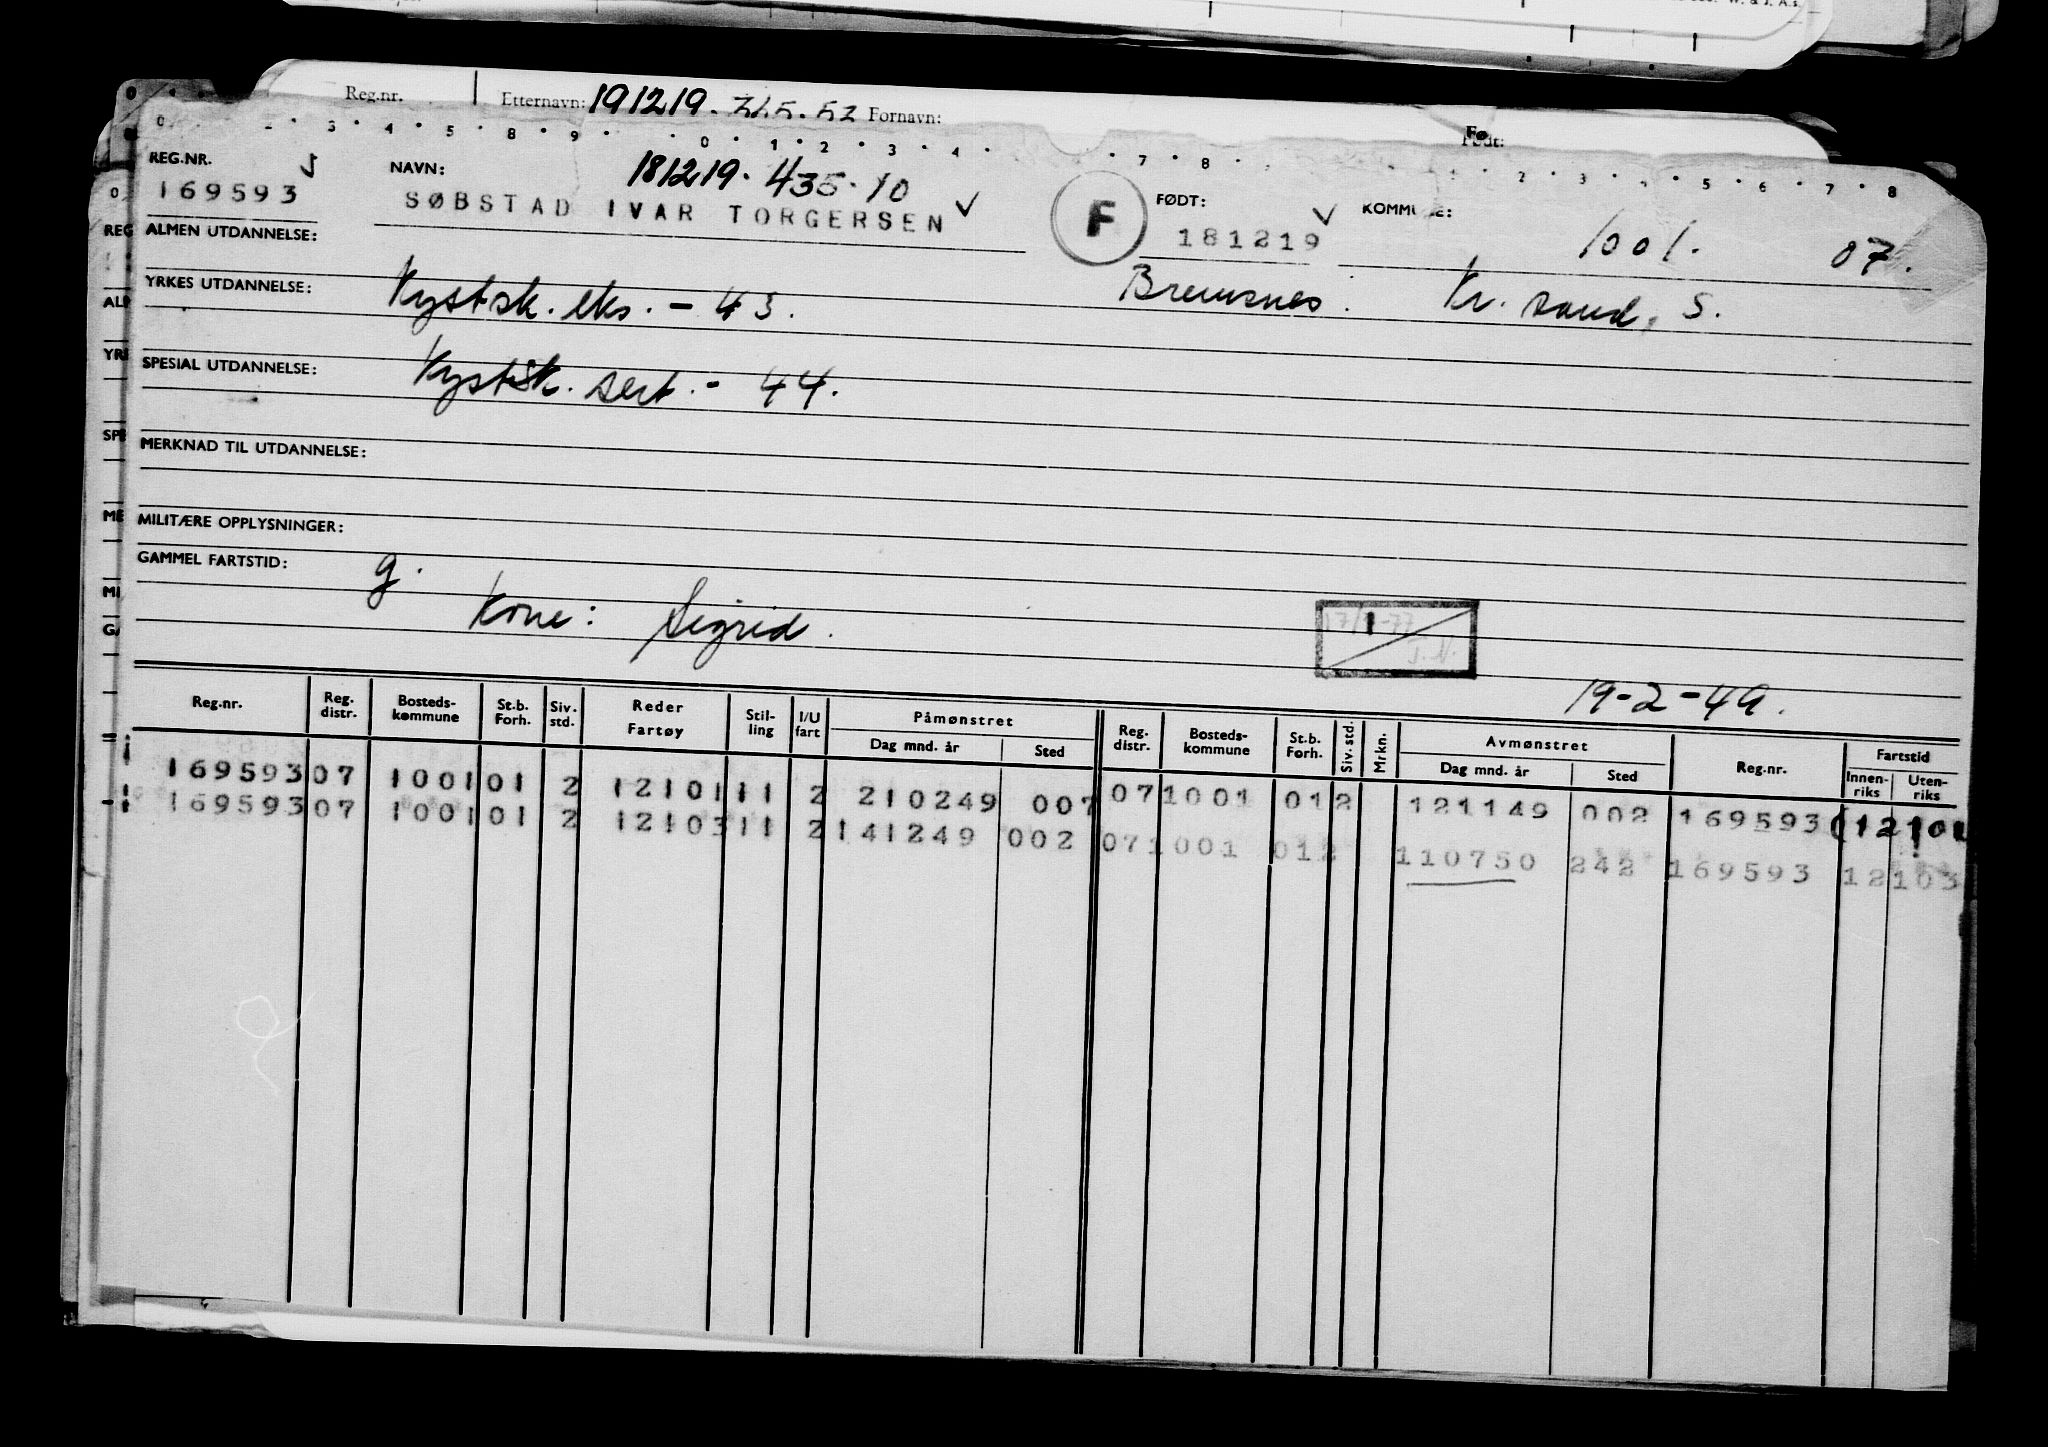 W. & J. A.s.
Reg.nr. Etternavn: 191219. Fornavn: Født:
REG.NR. NAVN: 181219. 435.10 FØDT: KOMMUNE:
169593 SØBSTAD IVAR TORGERSEN F 181219 1001. 07.
ALMEN UTDANNELSE:
YRKES UTDANNELSE: Kystsk. eks. - 43. Bremsnes. Kr. sand. S.
SPESIAL UTDANNELSE: Kystsk. sert. - 44.
MERKNAD TIL UTDANNELSE:
MILITÆRE OPPLYSNINGER:
GAMMEL FARTSTID: g.
Kone: Sigrid.
19-2-49.
Reg.nr. Reg. distr. Bosteds-kommune St.b. Forh. Siv. std. Reder Fartøy Stil-ling I/U fart Påmønstret Dag mnd. år Sted Reg. distr. Bosteds-kommune St.b. Forh. Siv. std. Mrkn. Avmønstret Dag mnd. år Sted Reg.nr. Fartstid Innen-riks Uten-riks
169593 07 1001 01 2 12101 11 2 210249 007 07 1001 01 2 121149 002 169593 12101
169593 07 1001 01 2 12103 11 2 141249 002 07 1001 01 2 110750 242 169593 12103